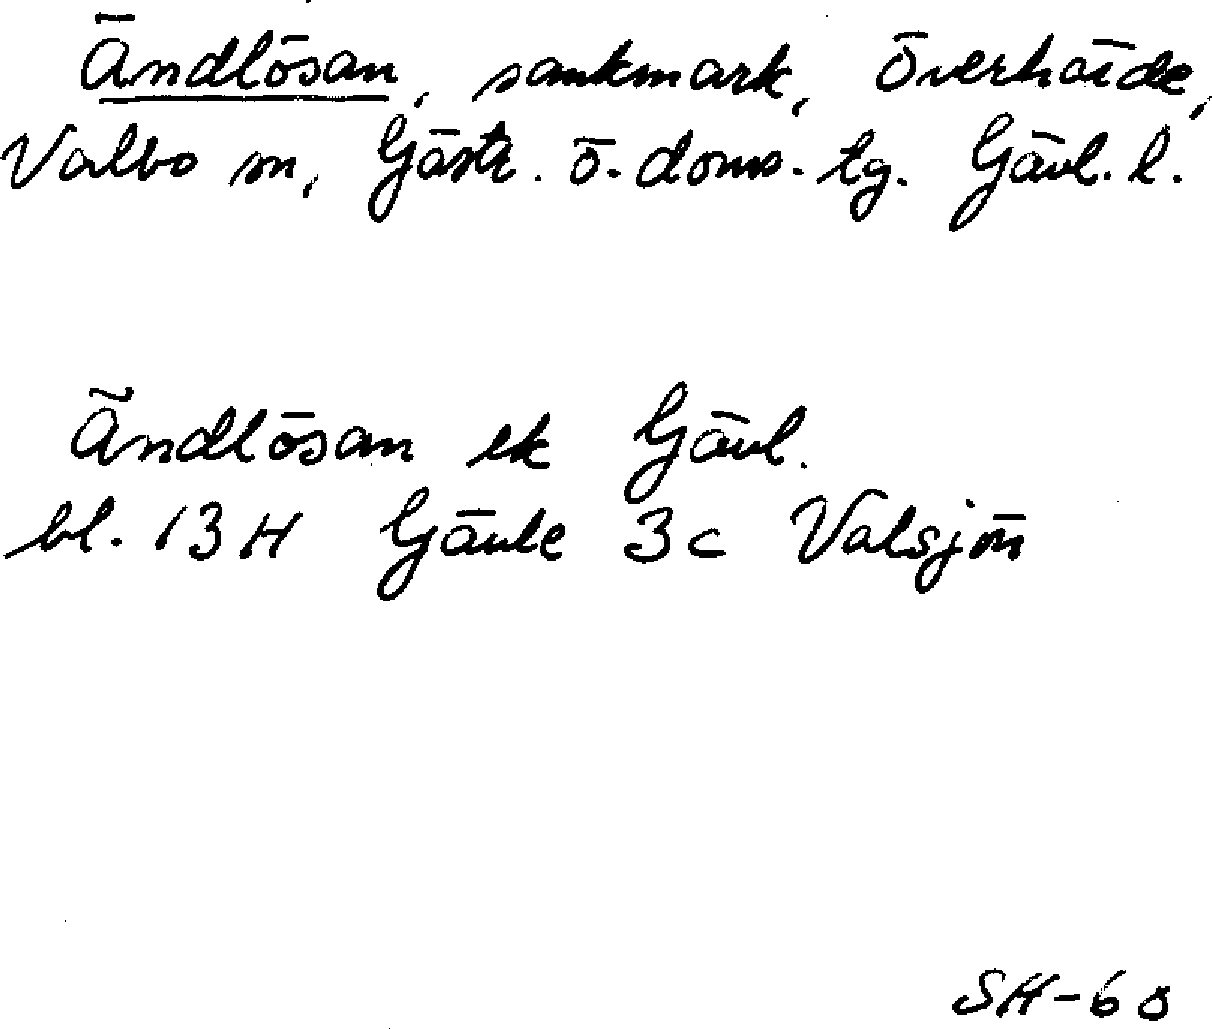 Ändlösan, sankmark, Överhärde,
Valbo sn, Gästr. ö. doms. tg. Gävl. l.
Ändlösan ek Gävl.
bl. 13 H Gävle 3c Valsjön
SH-68